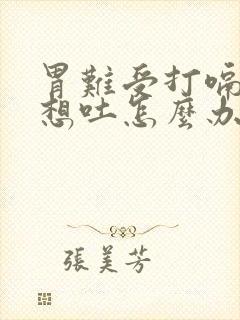 胃難受打嗝
想吐怎麼办
張美芳